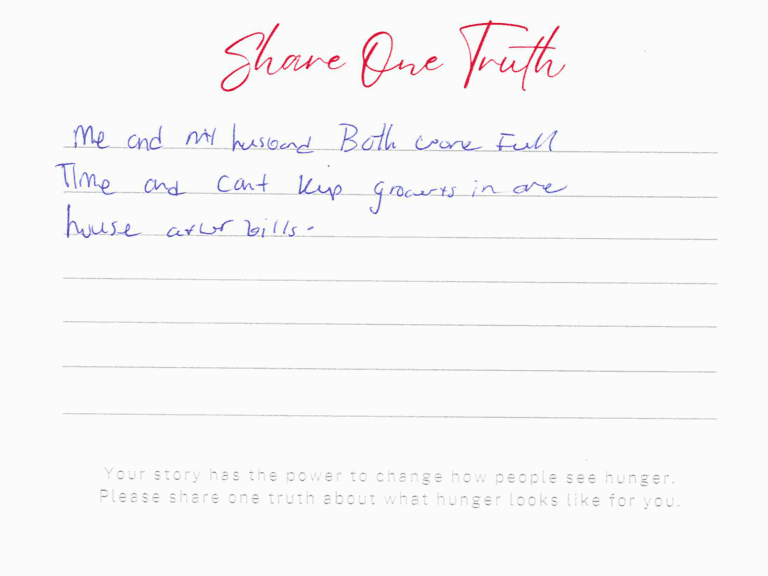 Share One Truth
Me and my husband Both work Full
Time and Cant kep grocerts in are
house after bills.
Your story has the power to change how people see hunger.
Please share one truth about what hunger looks like for you.